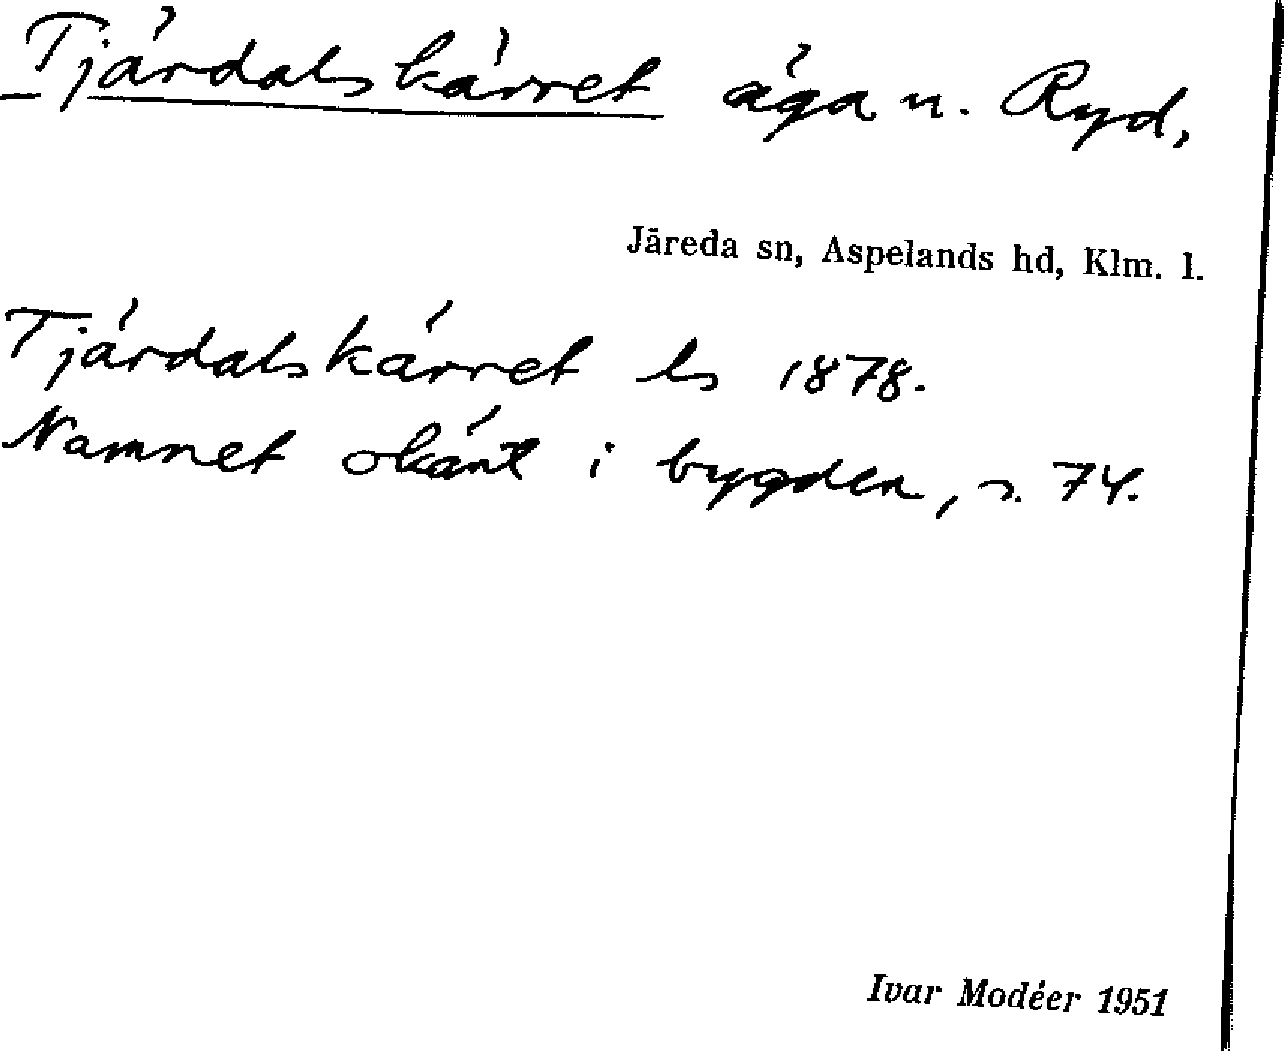 Tjärdalskärret äga u. Ryd,
Järeda sn, Aspelands hd, Klm. l.
Tjärdalskärret ls 1878.
Namnet okänt i bygden, s. 74.
Ivar Modéer 1951